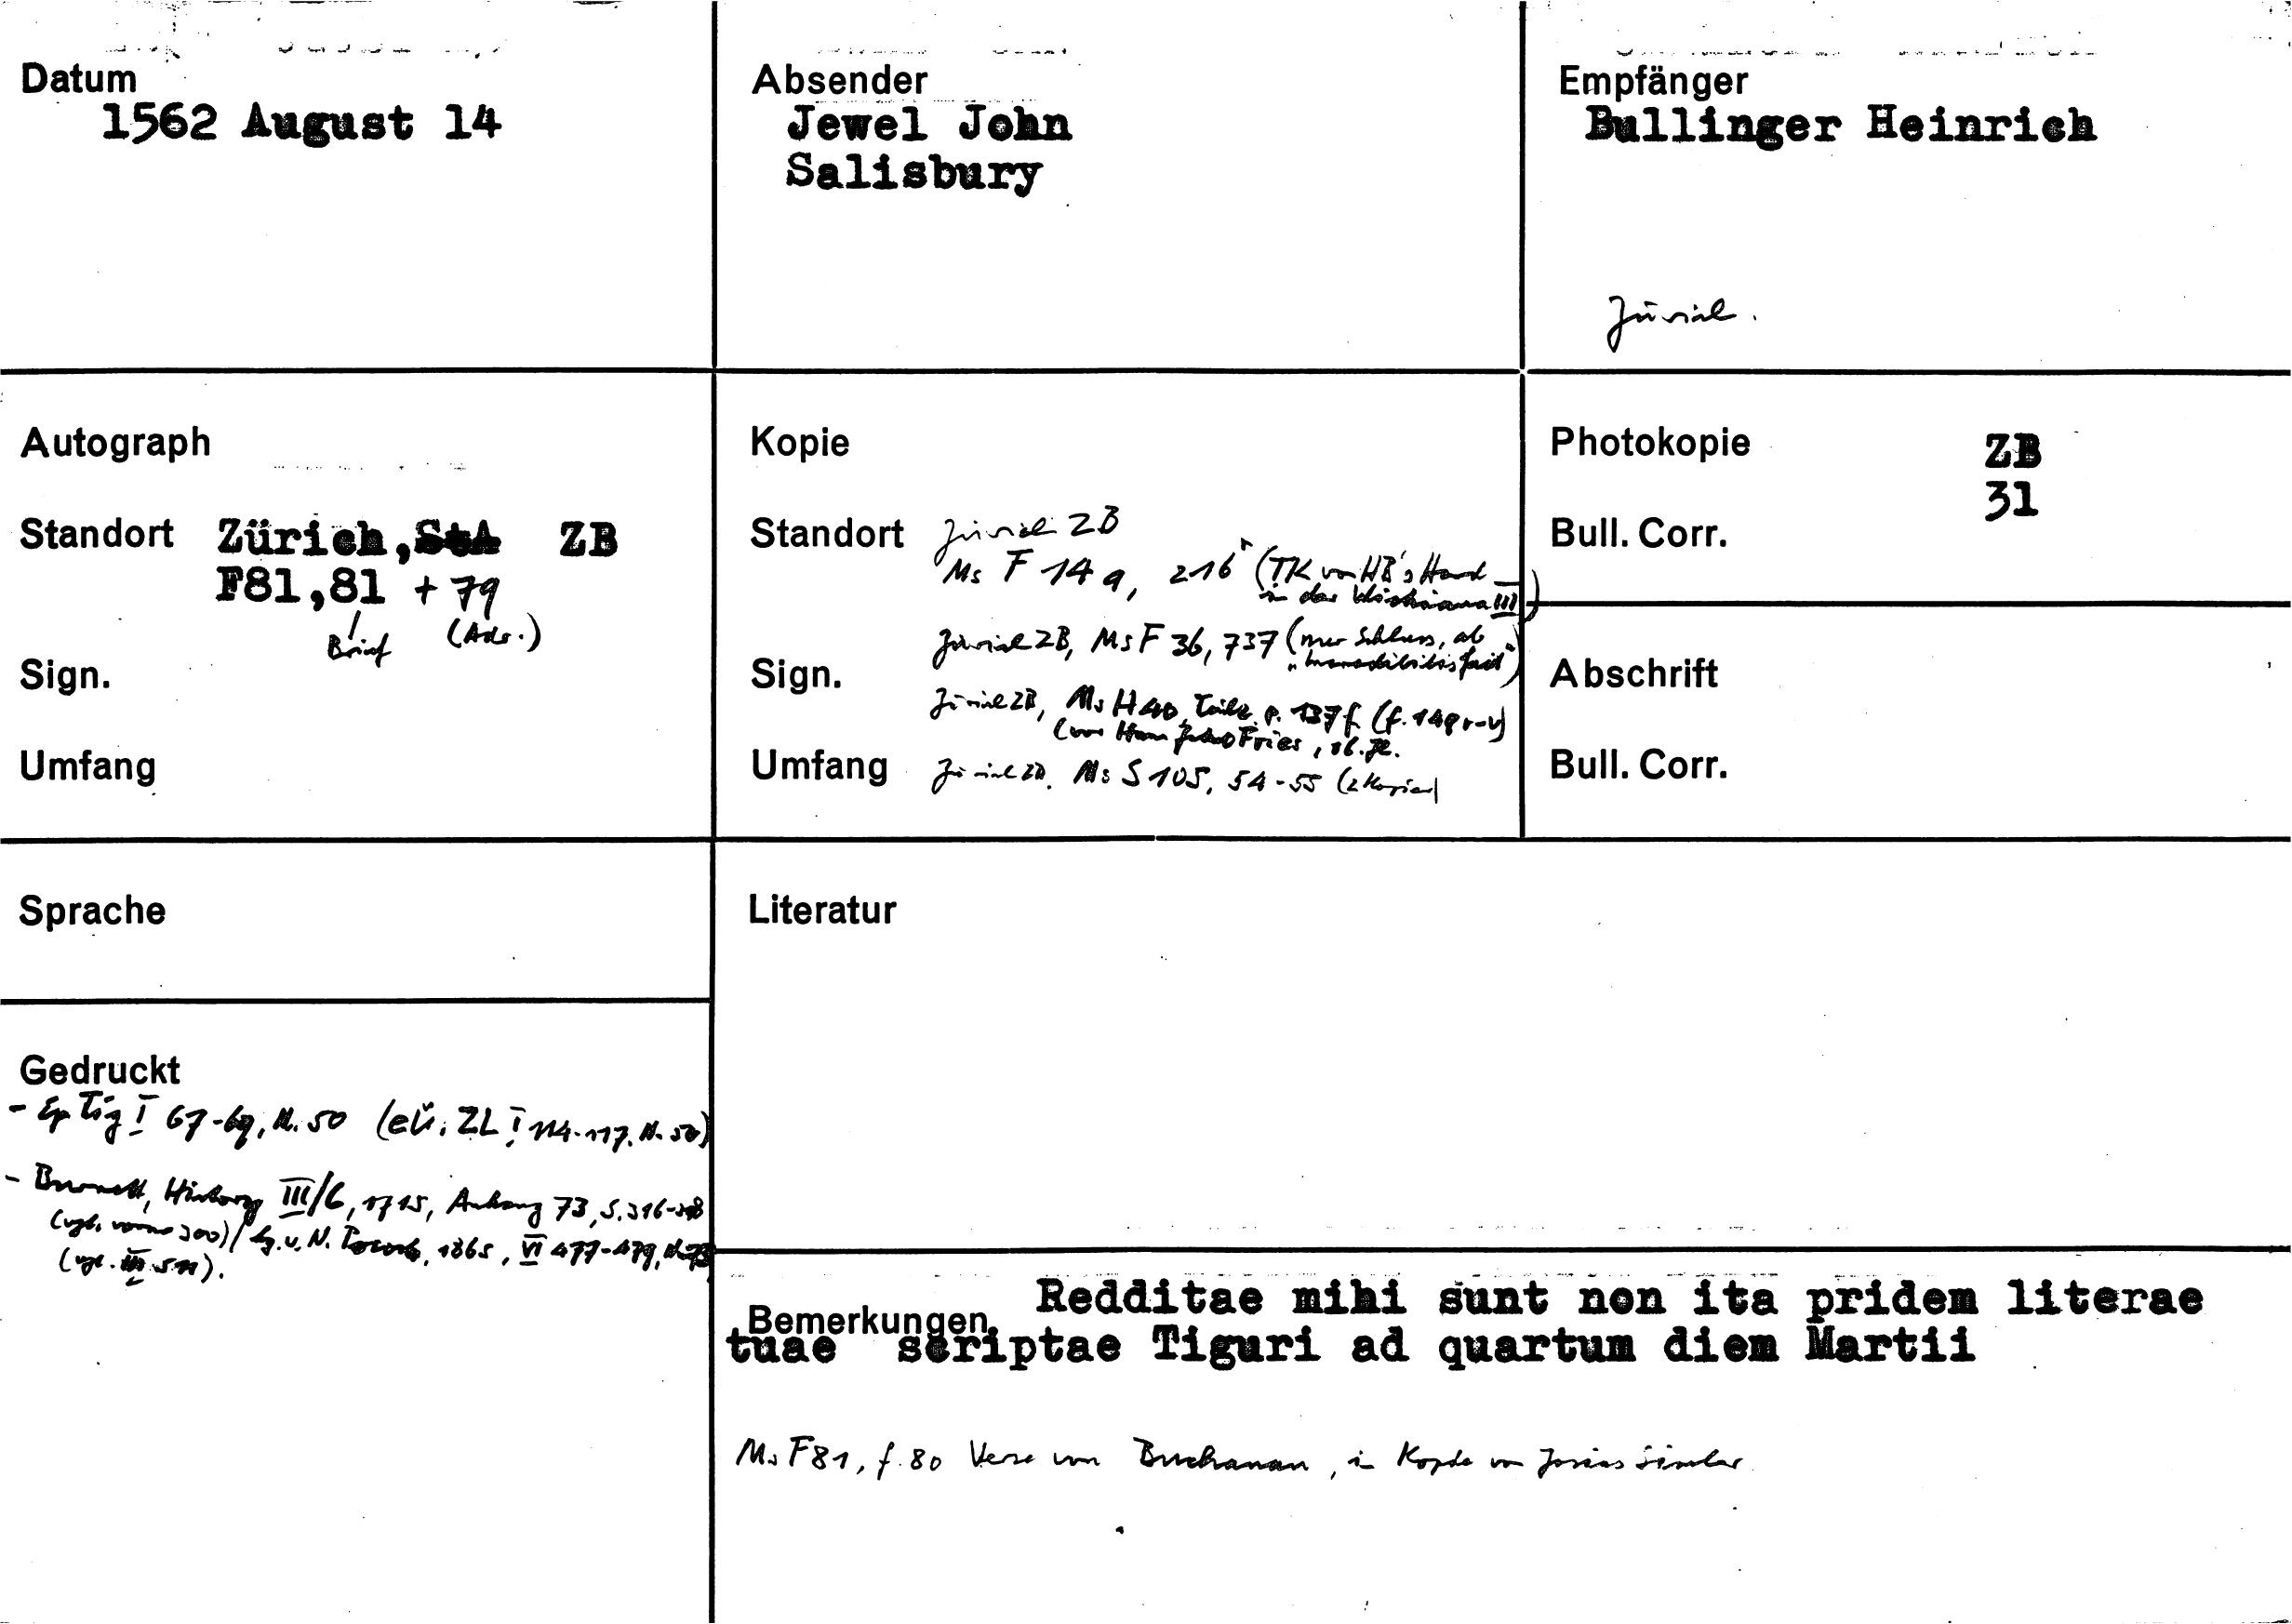 Datum
1562 August 14
Absender
Jewel John
Salisbury
Empfänger
Bullinger Heinrich
Zürich.
Autograph
Standort Zürich, StA ZB
F81,81 + 79
Brief (Adr.)
Sign.
Umfang
Kopie
Standort Zürich ZB
Ms F 14a, 216 (TK von HB's Hand
in der III)
Sign. Zürich ZB, Ms F 36, 737 (nur Schluss, ab
Zürich ZB, Ms H 40, p. 137f (f. 149r-v)
(von Hans Fries,
Umfang Zürich ZB. Ms S 105, 54-55 (2 Kopien)
Photokopie ZB
31
Bull. Corr.
Abschrift
Bull. Corr.
Sprache
Literatur
Gedruckt
- Ep Tig I 67-69, N. 50 (eü. ZL I 114-117. N. 50)
- Burnett, History III/6, 1715, Anhang 73, S. 316-
(vgl. vorne 300) / hg. v. N. Pocock, 1865, VI 477-479, N. 73
(vgl. III 511).
Bemerkungen Redditae mihi sunt non ita pridem literae
tuae scriptae Tiguri ad quartum diem Martii
Ms F81, f. 80 Verse von Buchanan, in Kopie von Josias Simler